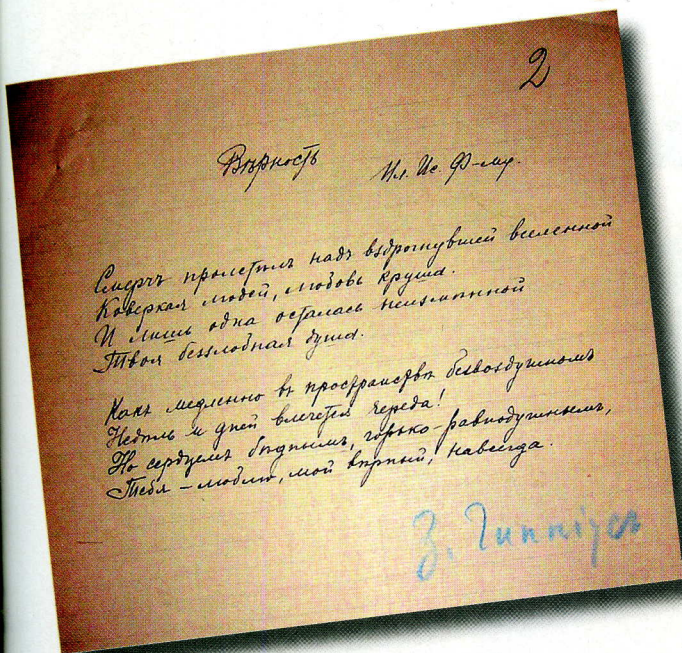 2
Вѣрность
Ил. Ис. Ф-му.
Смерчъ пролетѣлъ надъ вздрогнувшей вселенной
Коверкая людей, любовь круша.
И лишь одна осталась неизмѣнной
Твоя беззлобная душа.
Какъ медленно въ пространствѣ безвоздушномъ
Недѣль и дней влечется череда!
Но сердцемъ бѣднымъ, горько-равнодушнымъ,
Тебя – люблю, мой вѣрный, навсегда.
З. Гиппіусъ